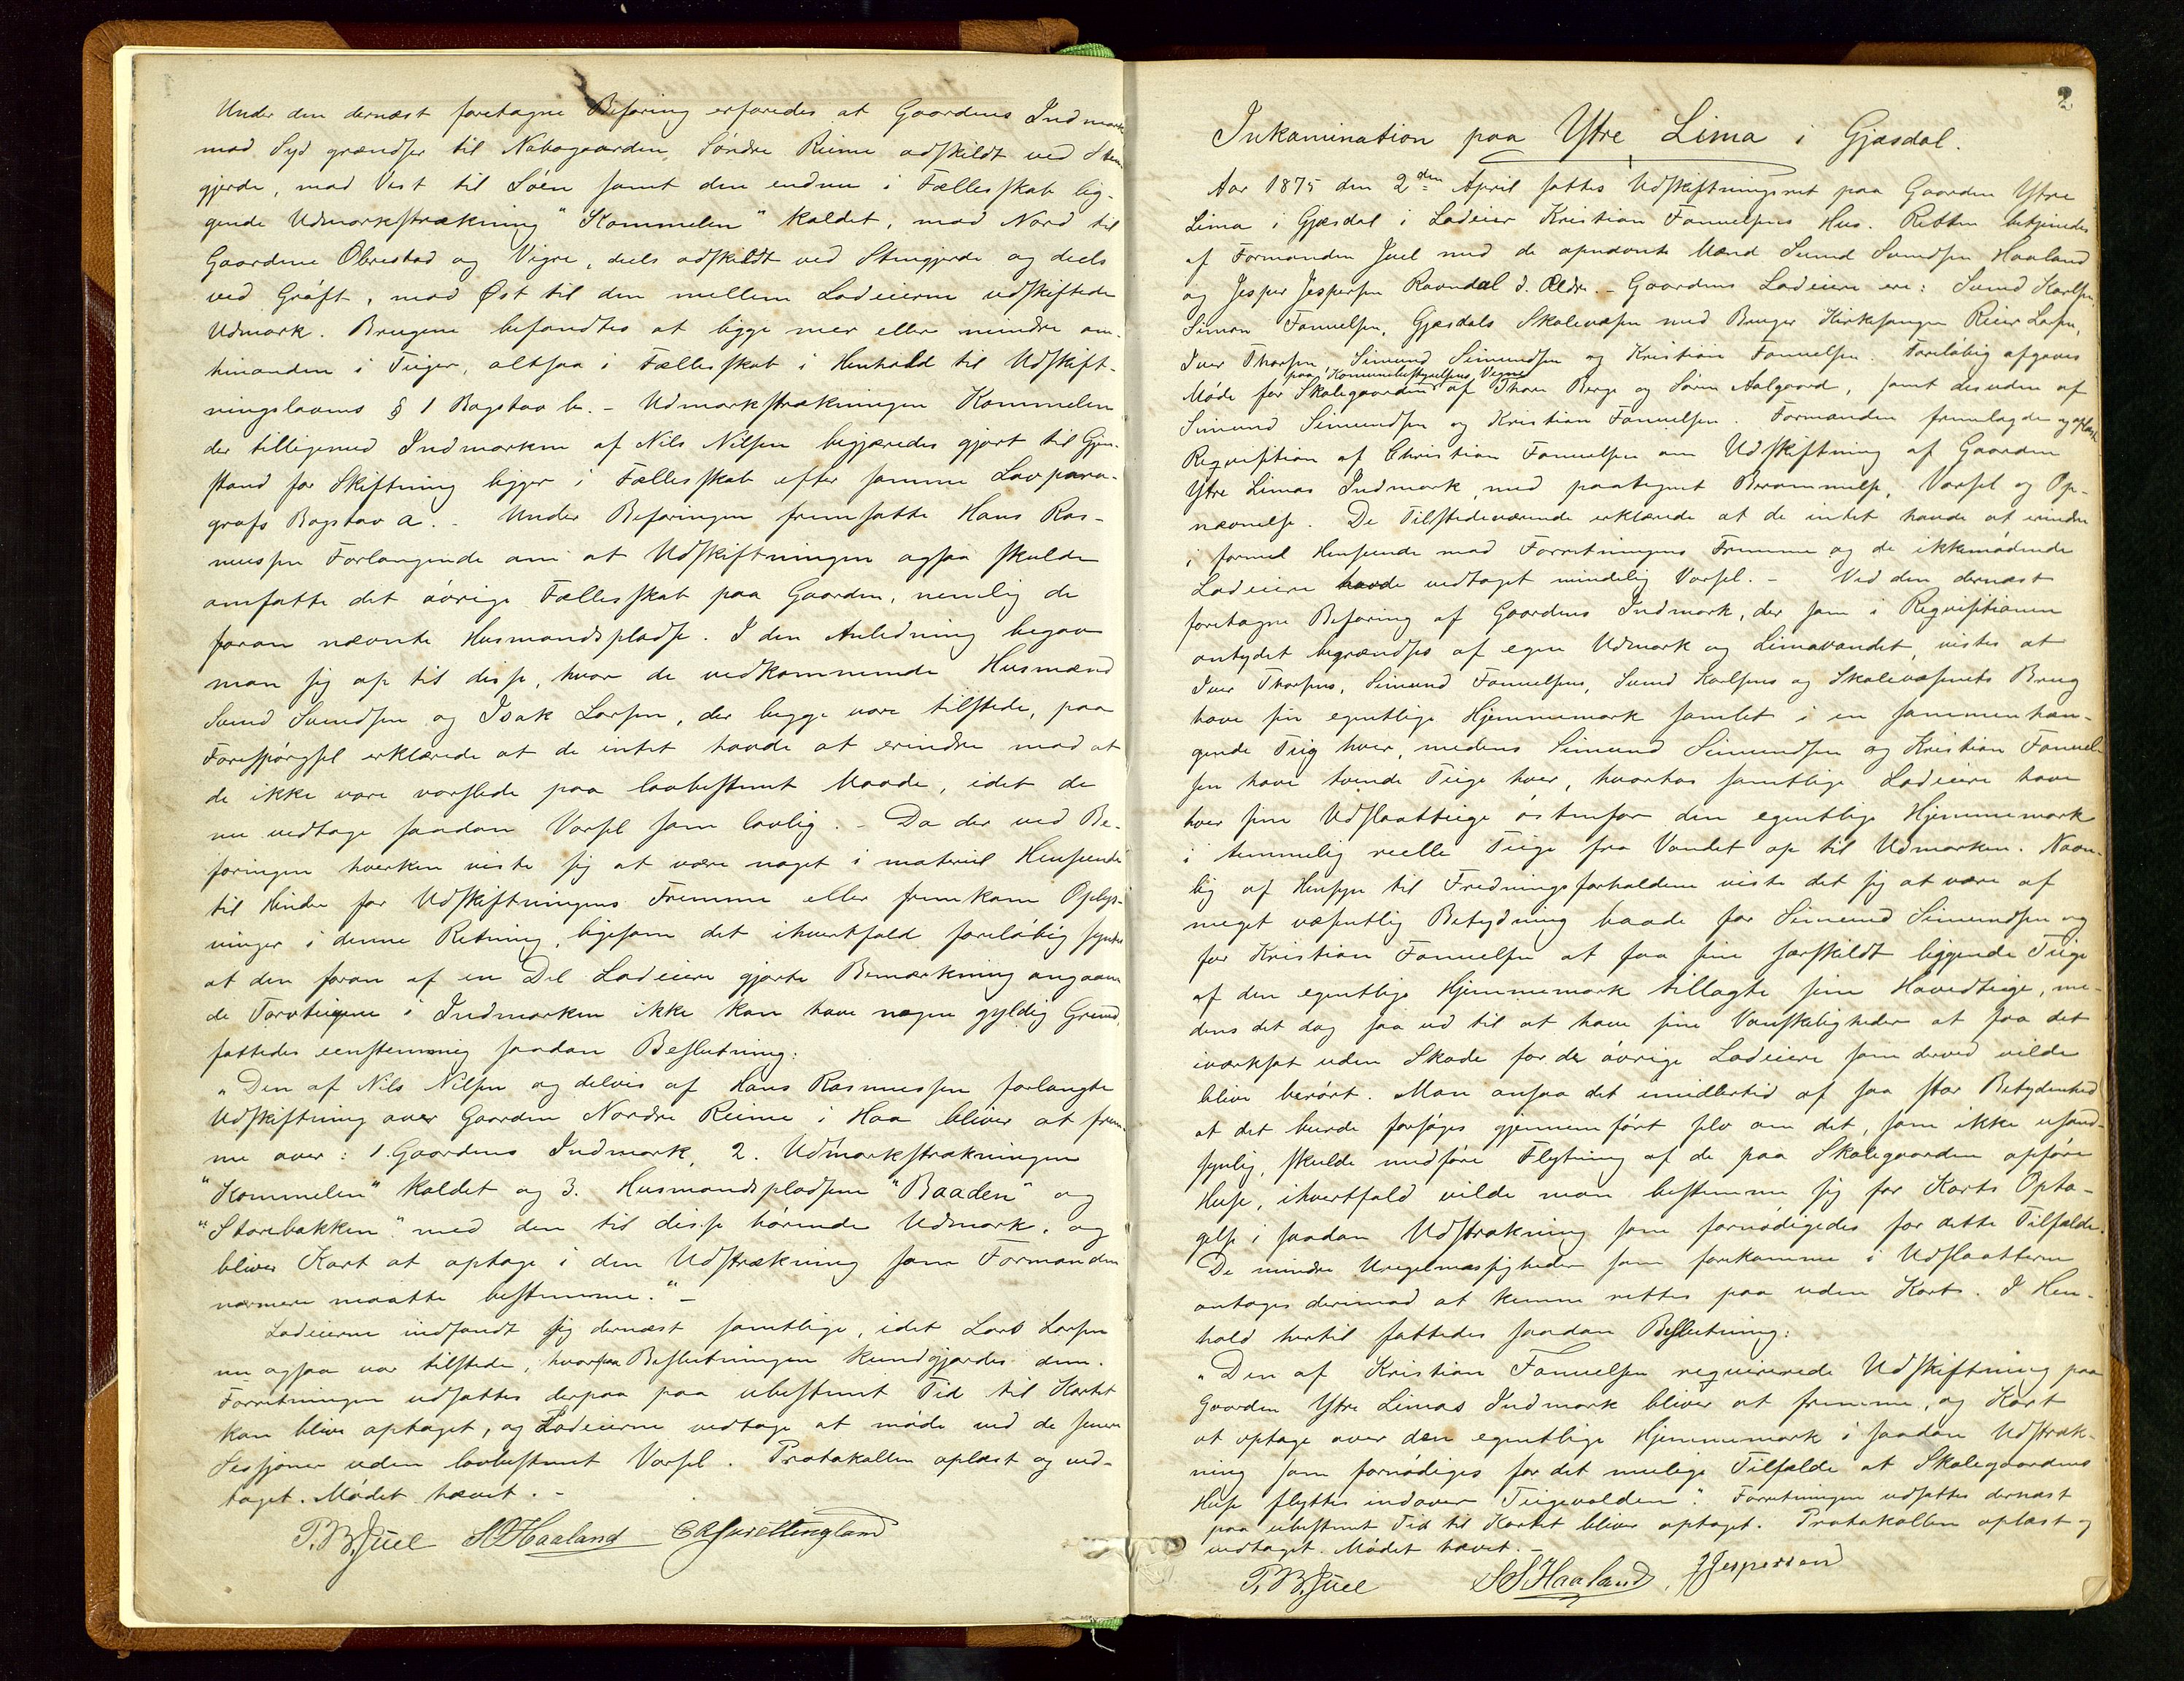 Under den dernæst foretagne Befaring erfaredes at Gaardens Indmark
mod Syd grændser til Nabogaarden, Søndre Reime adskildt ved Sten-
gjerde, mod Vest til Søen samt den endnu i Fællesskab lig-
gende Udmarkstrækning "Kommelen" kaldet, mod Nord til
Gaardene Obrestad og Vigre, deels adskildt ved Stengjerde og deels
ved Grøft, mod Øst til den mellem Lodeierne udskiftede
Udmark. Brugene befandtes at ligge mer eller mindre om-
hinanden i Teiger, altsaa i Fællesskab i Henhold til Udskift-
ningslovens § 1 Bogstav b. - Udmarkstrækningen Kommelen
der tilligemed Indmarken af Nils Nilsen begjæredes gjort til Gjen-
stand for Skiftning ligger i Fællesskab efter samme Lovpara-
grafs Bogstav a. - Under Befaringen fremsatte Hans Ras-
mussen Forlangende om at Udskiftningen ogsaa skulde
omfatte det øvrige Fællesskab paa Gaarden, nemlig de
foran nævnte Husmandspladse. I den Anledning begav
man sig op til disse, hvor de vedkommende Husmænd
Svend Svendsen og Isak Larsen, der begge vare tilstede, paa
Forespørgsel erklærede at de intet havde at erindre mod at
de ikke vare varslede paa lovbestemt Maade, idet de
nu vedtage saadan Varsel som lovlig. - Da der ved Be-
faringen hverken viste sig at være noget i materiel Henseende
til Hinder for Udskiftningens Fremme eller fremkom Oplys-
ninger i denne Retning, ligesom det ihvertfald foreløbig synes
at den foran af en Del Lodeiere gjorte Bemærkning angaaen-
de Torvteigene i Indmarken ikke kan have nogen gyldig Grund,
fattedes eenstemmig saadan Beslutning:
"Den af Nils Nilsen og delvis af Hans Rasmussen forlangte
Udskiftning over Gaarden Nordre Reime i Haa bliver at frem-
me over: 1. Gaardens Indmark, 2. Udmarkstrækningen
"Kommelen" kaldet og 3. Husmandspladsene "Baaden" og
"Storebakken" med den til disse hørende Udmark, og
bliver Kart at optage i den Udstrækning som Formanden
nærmere maatte bestemme." -
Lodeierne indfandt sig dernæst samtlige, idet Lars Larsen
nu ogsaa var tilstede, hvorpaa Beslutningen kundgjordes dem.
Forretningen udsattes derpaa paa ubestemt Tid til Kartet
kan blive optaget, og Lodeierne vedtage at møde ved de senere
Sessjoner uden lovbestemt Varsel. Protokollen oplæst og ved-
taget. Mødet hævet. -
T. B. Juel S S Haaland
2
Inkamination paa Ytre Lima i Gjæsdal.
Aar 1875 den 2den April sattes Udskiftningsret paa Gaarden Ytre
Lima i Gjæsdal i Lodeier Kristian Fanuelsens Hus. Retten betjenedes
af Formanden Juel med de opnævnte Mænd Svend Svendsen Haaland
og Jesper Jespersen Ravndal d. Ældre - Gaardens Lodeiere ere: Svend Karlsen,
Simon Fanuelsen, Gjæsdals Skolevæsen med Bruger Kirkesanger Reier Larsen,
Iver Thorsen, Simund Simundsen og Kristian Fanuelsen. Foreløbig afgaves
paa Kommunebestyrelsens Vegne
Møde for Skolegaarden af Thore Berge og Søren Aalgaard, samt desuden af
Simund Simundsen og Kristian Fanuelsen. Formanden fremlagde og oplæste
Reqvisition af Christian Fanuelsen om Udskiftning af Gaarden
Ytre Limas Indmark, med paategnet Berammelse, Varsel og Op-
nævnelse. De Tilstedeværende erklærede at de intet havde at erindre
i formel Henseende mod Forretningens Fremme og de ikkemødende
Lodeiere havde vedtaget mindelig Varsel. - Ved den dernæst
foretagne Befaring af Gaardens Indmark, der som i Reqvisitionen
antydet begrændses af egen Udmark og Limavandet, vistes at
Iver Thorsens, Simund Fanuelsens, Svend Karlsens og Skolevæsenets Brug
have sin egentlige Hjemmemark samlet i en sammenhæn-
gende Teig hver, medens Simund Simundsen og Kristian Fanuel-
sen have tvende Teige hver, hvorhos samtlige Lodeiere have
hver sine Udslaatteige østenfor den egentlige Hjemmemark
i temmelig reelle Teige fra Vandet op til Udmarken. Navn-
lig af Hensyn til Fredningsforholdene viste det sig at være af
meget væsentlig Betydning baade for Simund Simundsen og
for Kristian Fanuelsen at faa sine særskildt liggende Teige
af den egentlige Hjemmemark tillagte sine Hovedteige, me-
dens det dog saa ud til at have sine Vanskeligheder at faa det
iværksat uden Skade for de øvrige Lodeiere som derved vilde
blive berørt. Man ansaa det imidlertid af saa stor Betydenhed
at det burde forsøges gjennemført selv om det, som ikke usand-
synlig, skulde medføre Flytning af de paa Skolegaarden opførte
Huse, ihvertfald vilde man bestemme sig for Karts Opta-
gelse i saadan Udstrækning som fornødigedes for dette Tilfælde.
De mindre Uregelmæssigheder som forekomme i Udslaatterne
antages derimod at kunne rettes paa uden Kart. I Hen-
hold hertil fattedes saadan Beslutning:
"Den af Kristian Fanuelsen reqvirerede Udskiftning paa
Gaarden Ytre Limas Indmark bliver at fremme, og Kart
at optage over den egentlige Hjemmemark i saadan Udstræk-
ning som fornødiges for det mulige Tilfælde at Skolegaardens
Huse flyttes indover Teigevolden". Forretningen udsattes dernæst
paa ubestemt Tid til Kartet bliver optaget. Protokollen oplæst og
vedtaget. Mødet hævet. -
T. B. Juel S S Haaland, J Jespersen